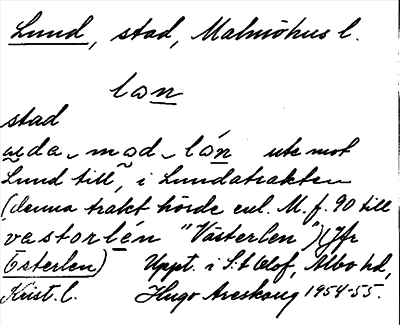 Lund, stad, Malmöhus l.
lɑn
stad
ɑ mɑd lɑ́n ute mot
Lund till, i Lundatrakten
(denna trakt hörde enl. M. f. 90 till
vastorlén "Västerlen") (Jfr
Österlen) Uppt. i S:t Olof, Albo hd,
Krist. l. Hugo Areskoug 1954-55.